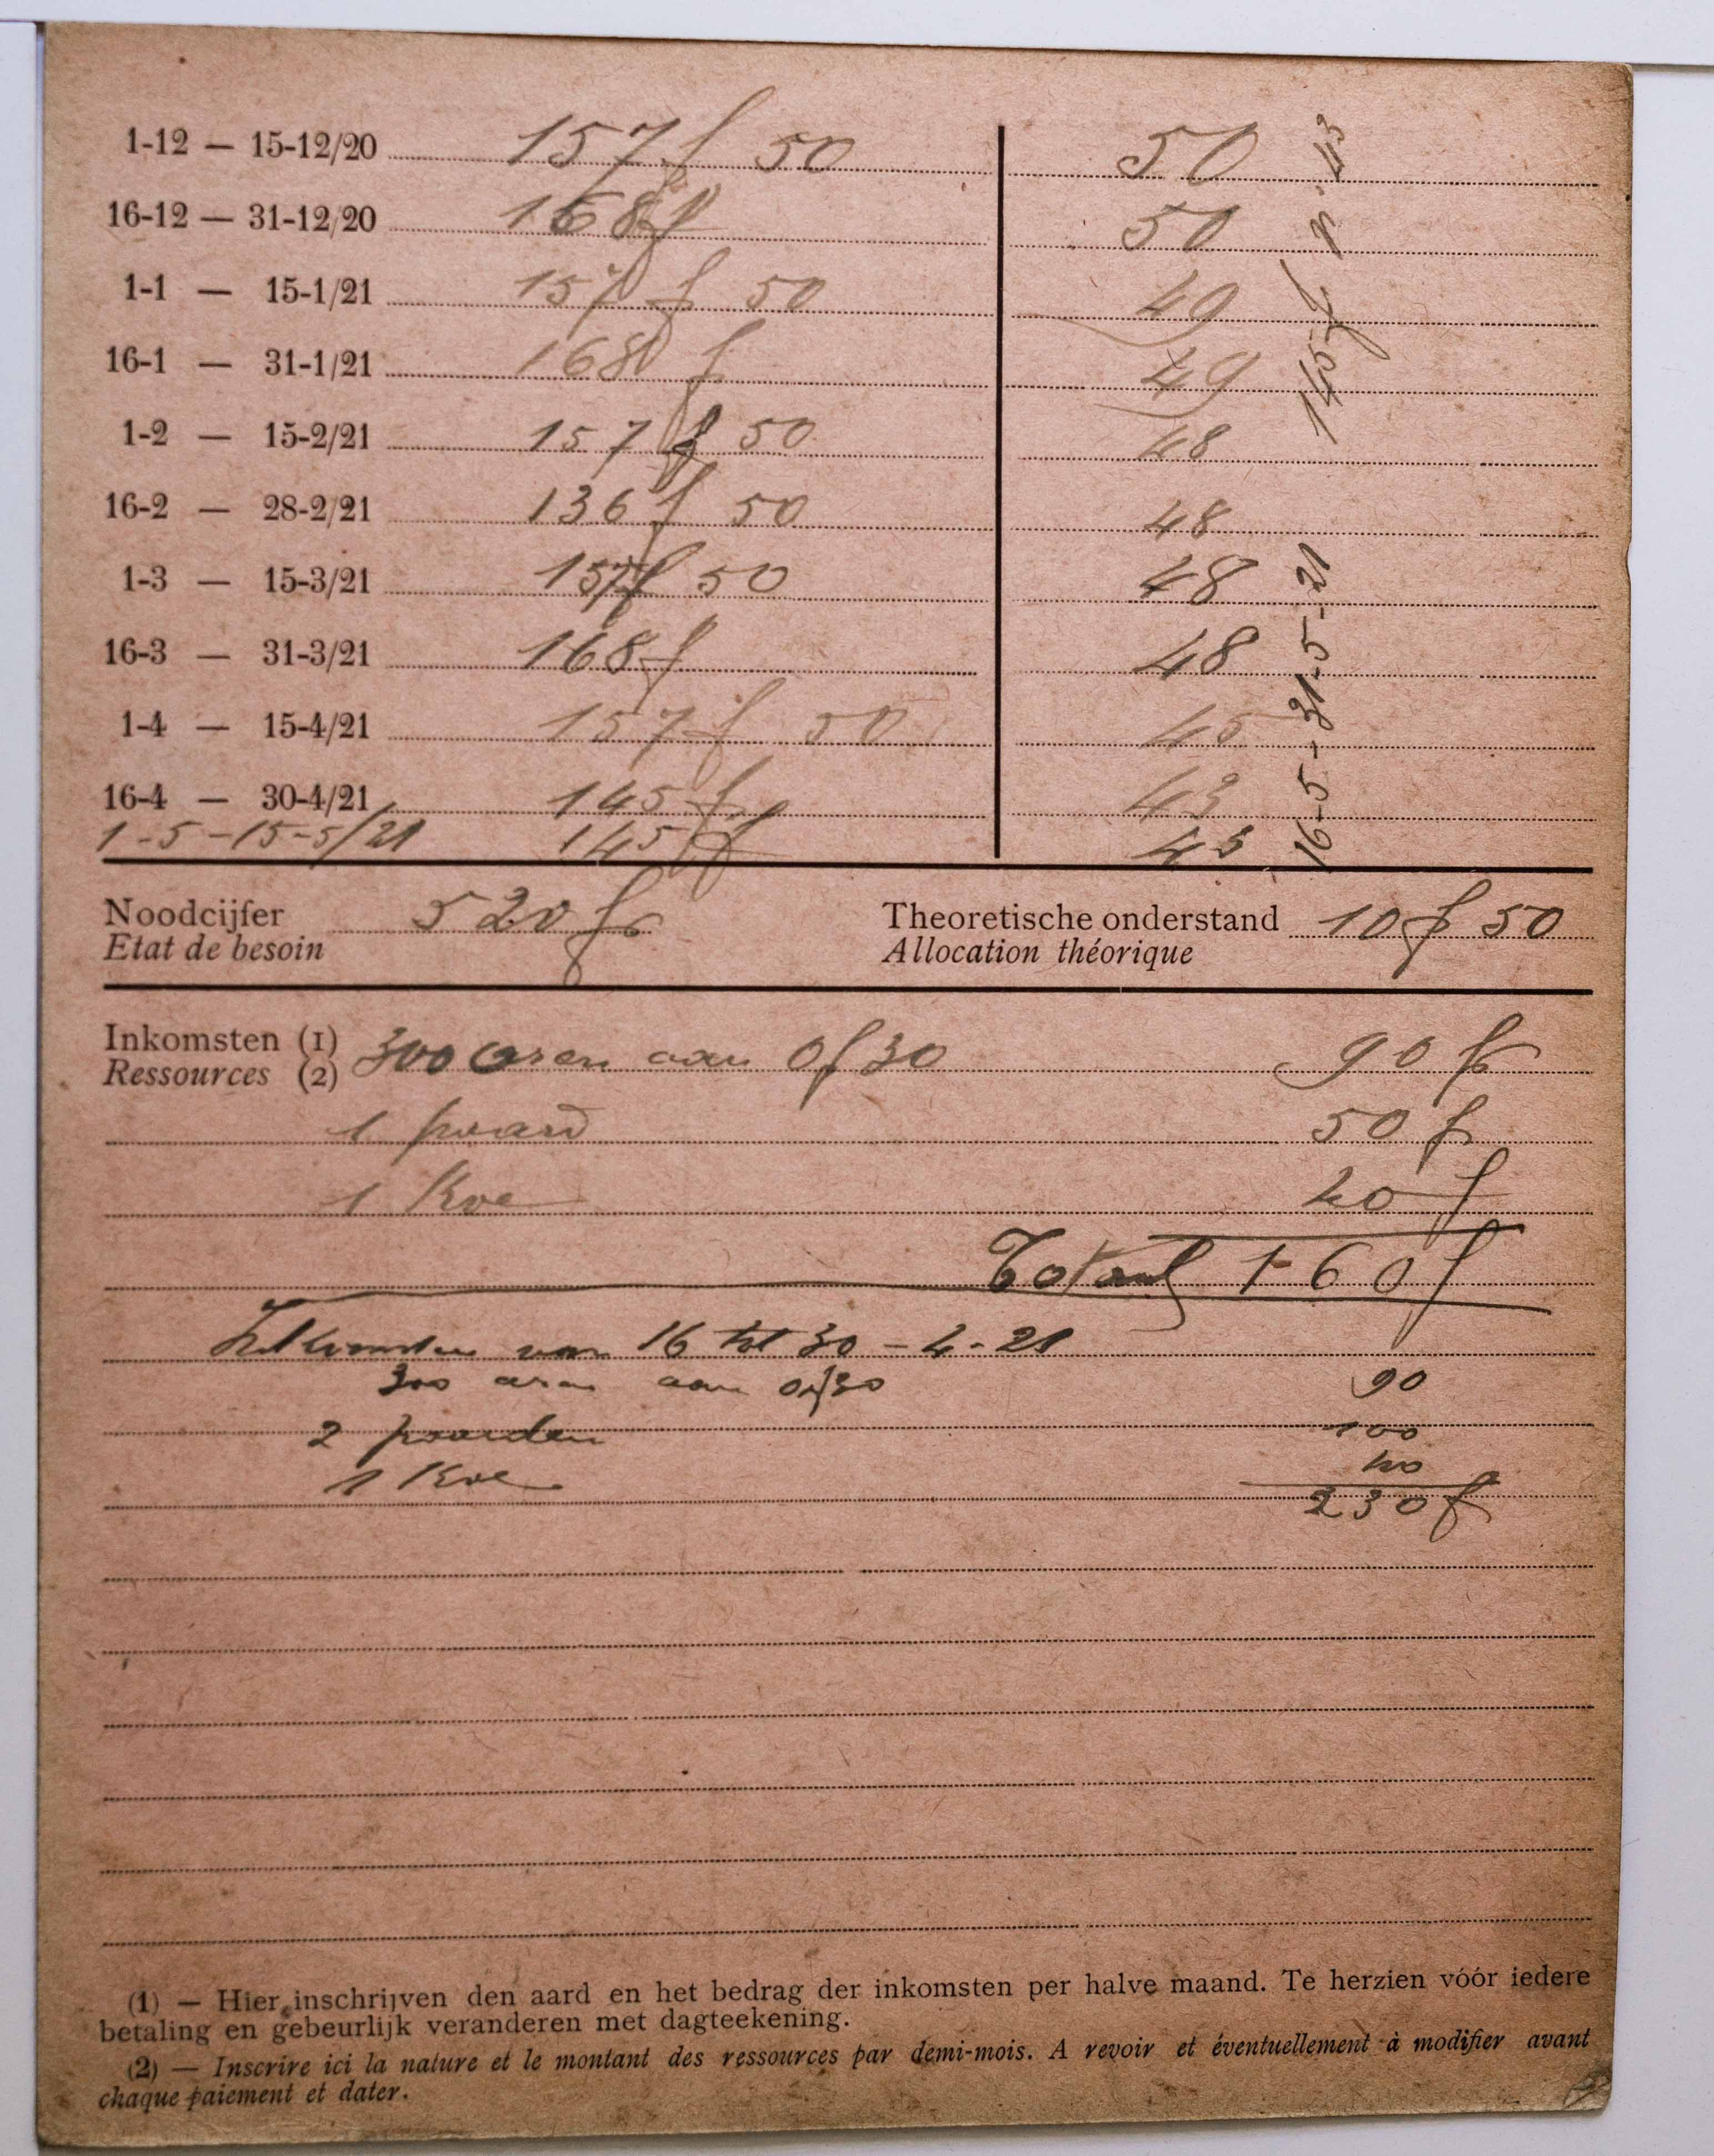 1-12 — 15-12/20 157 f 50 50
16-12 — 31-12/20 168 f 50
1-1 — 15-1/21 157 f 50 49
16-1 — 31-1/21 168 f 49
1-2 — 15-2/21 157 f 50 48
16-2 — 28-2/21 136 f 50 48
1-3 — 15-3/21 157 f 50 48
16-3 — 31-3/21 168 f 48
1-4 — 15-4/21 157 f 50 45
16-4 — 30-4/21 145 f 43
1-5-15-5/21 145 f 43
16-5-31-5-21 145 f n. 43
Noodcijfer 520 fr Theoretische onderstand 10 f 50
Etat de besoin Allocation théorique
Inkomsten (1) 300 aren aan 0f30 90 fr
Ressources (2)
1 paard 50 f
1 Koe 20 f
Totaal 160 f
van 16 tot 30-4-21
300 aren aan 0f30 90
2 paarden 100
1 Koe 40
230 f
(1) — Hier inschrijven den aard en het bedrag der inkomsten per halve maand. Te herzien vóór iedere
betaling en gebeurlijk veranderen met dagteekening.
(2) — Inscrire ici la nature et le montant des ressources par demi-mois. A revoir et éventuellement à modifier avant
chaque paiement et dater.